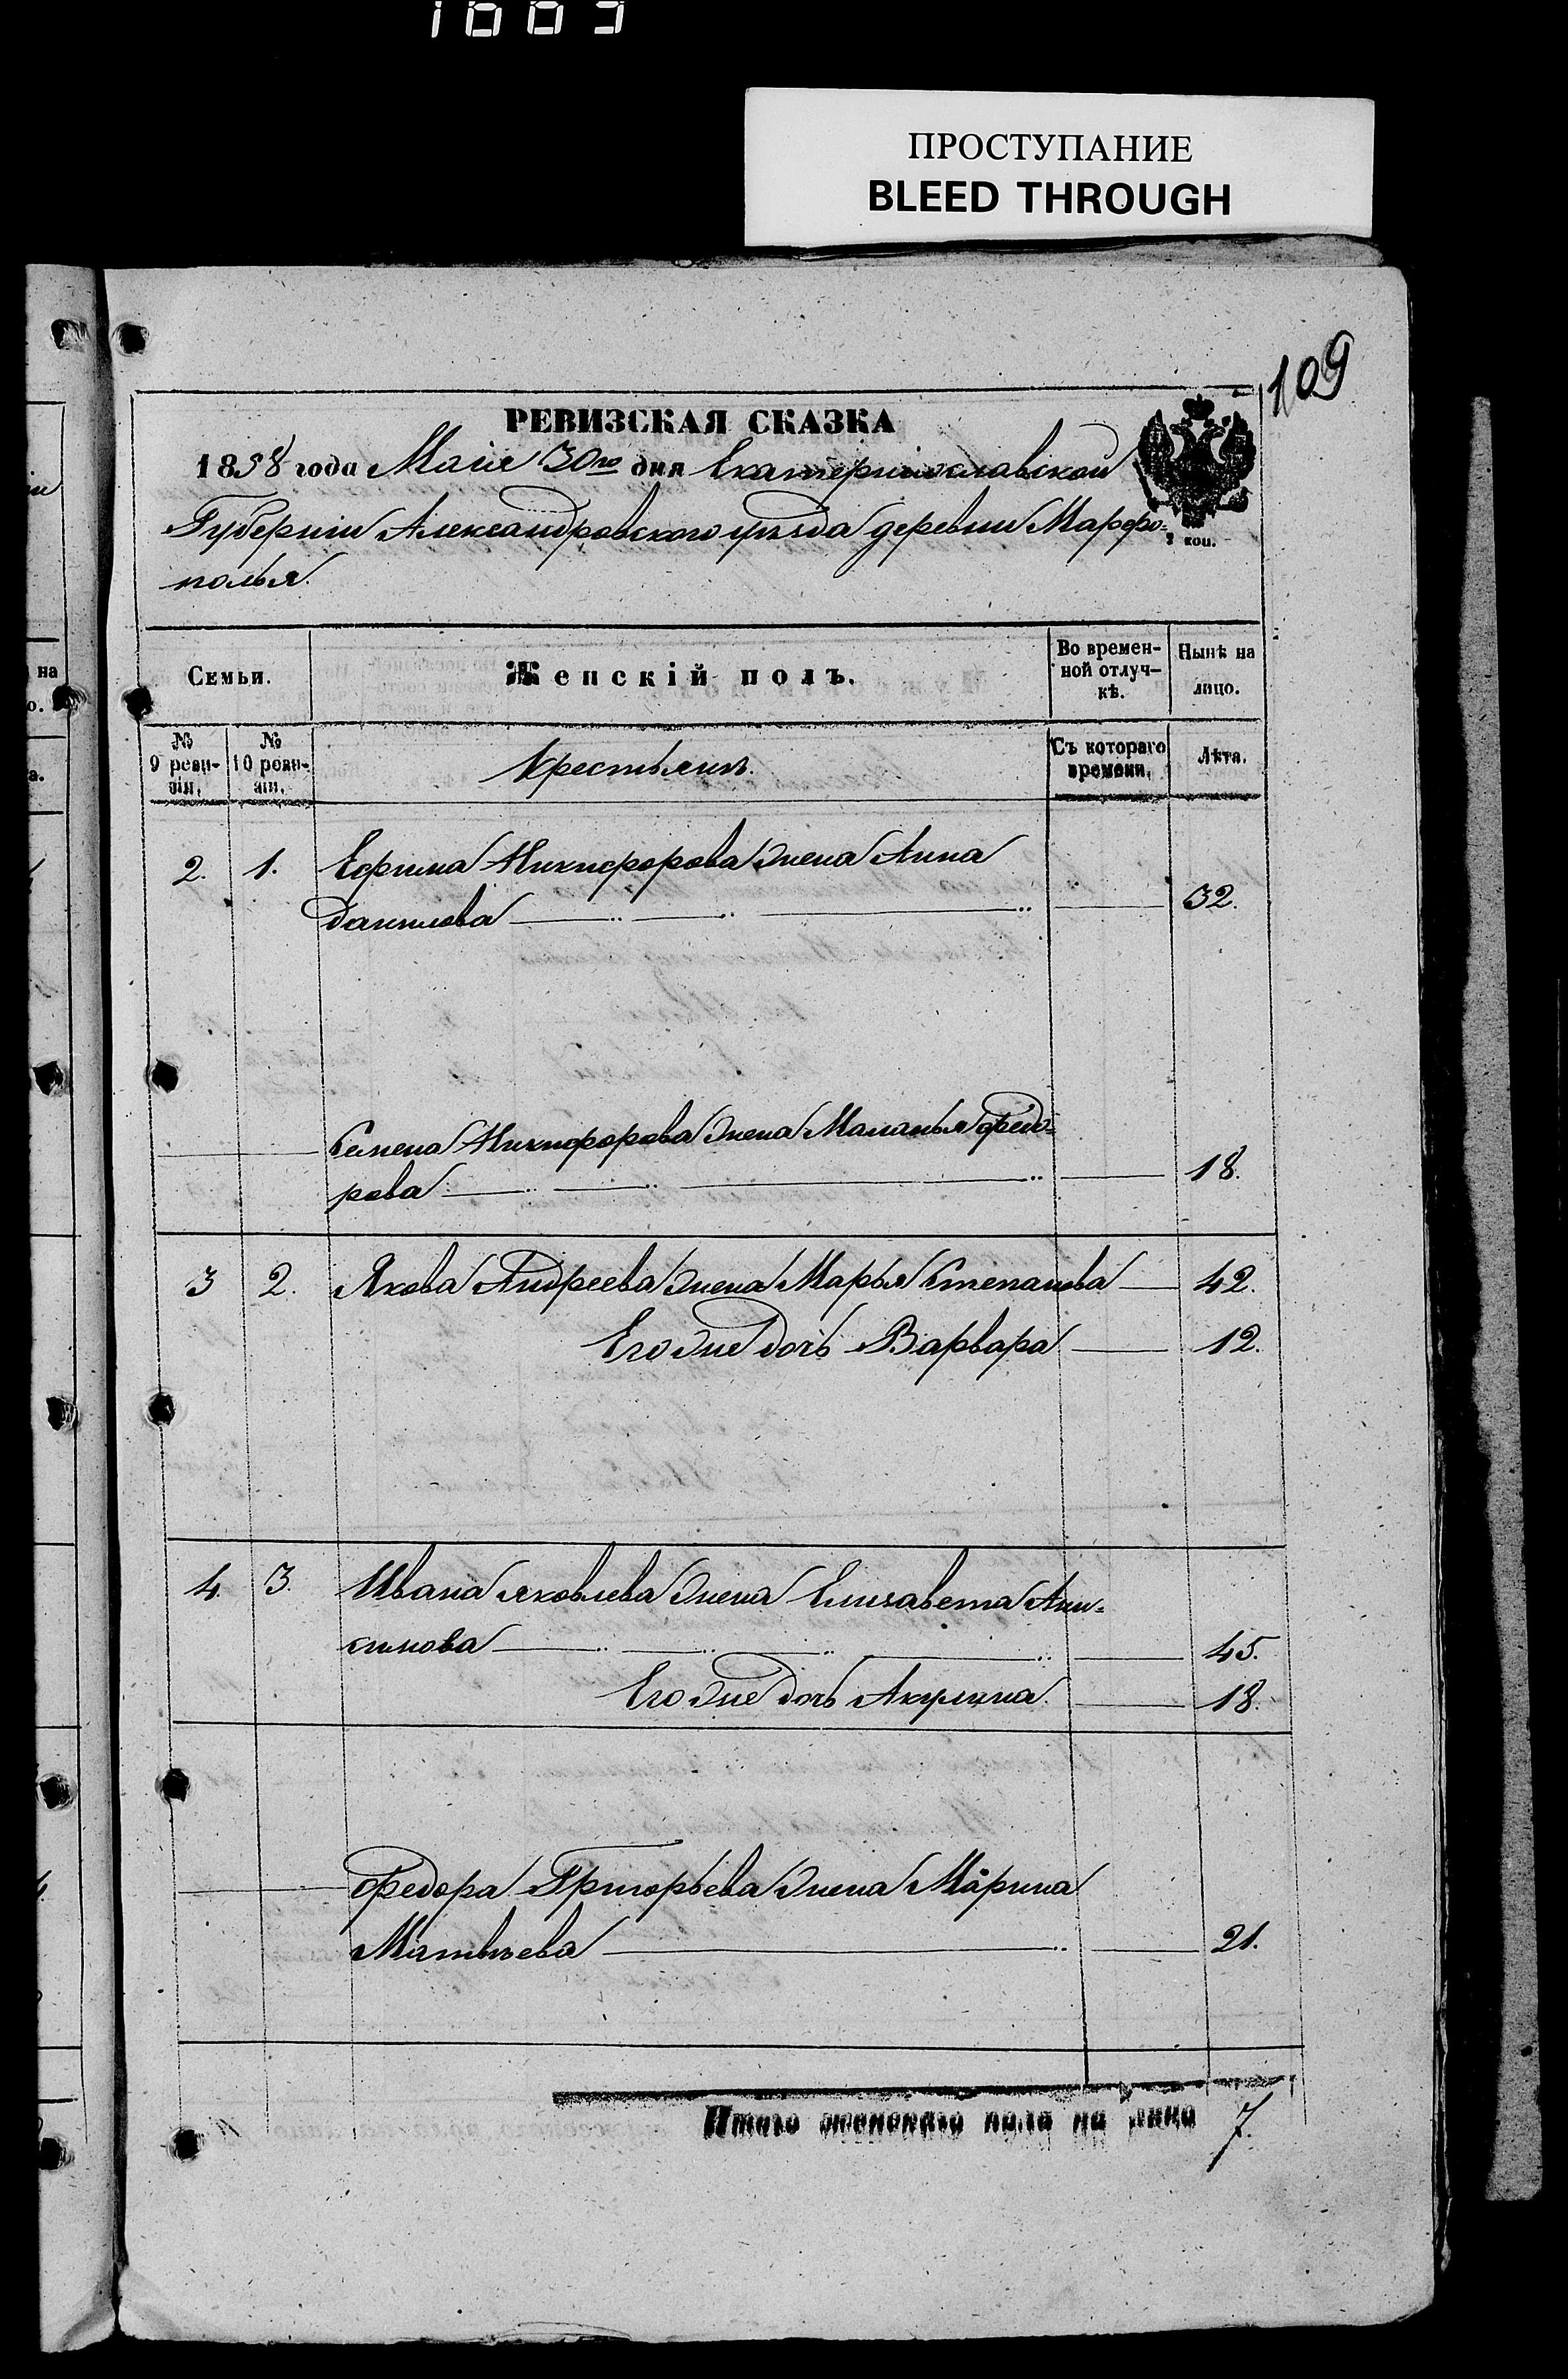 ПРОСТУПАНИЕ
BLEED THROUGH
109
РЕВИЗСКАЯ СКАЗКА
1858 года Маія 30го дня Екатеринославской
Губерніи Александровского уѣзда деревни Марфо=
полья.
2 коп.
Семьи. Женскій полъ. Во времен- Нынѣ на
ной отлуч- лицо.
кѣ.
№ № Крестьянъ. Съ котораго Лѣта.
9 реви- 10 реви- времени.
зіи. зіи.
2. 1. Ефима Никифорова жена Анна
Данилова 32.
Семена Никифорова жена Маланья Федо=
рова 18.
3 2. Якова Андреева жена Марья Степанова 42.
Его же дочь Варвара 12.
4. 3. Ивана Яковлева жена Елизавета Ани=
симова 45.
Его же дочь Акулина. 18.
Федора Григорьева жена Марина
Матвѣева 21.
Итого женскаго пола на лицо 7.